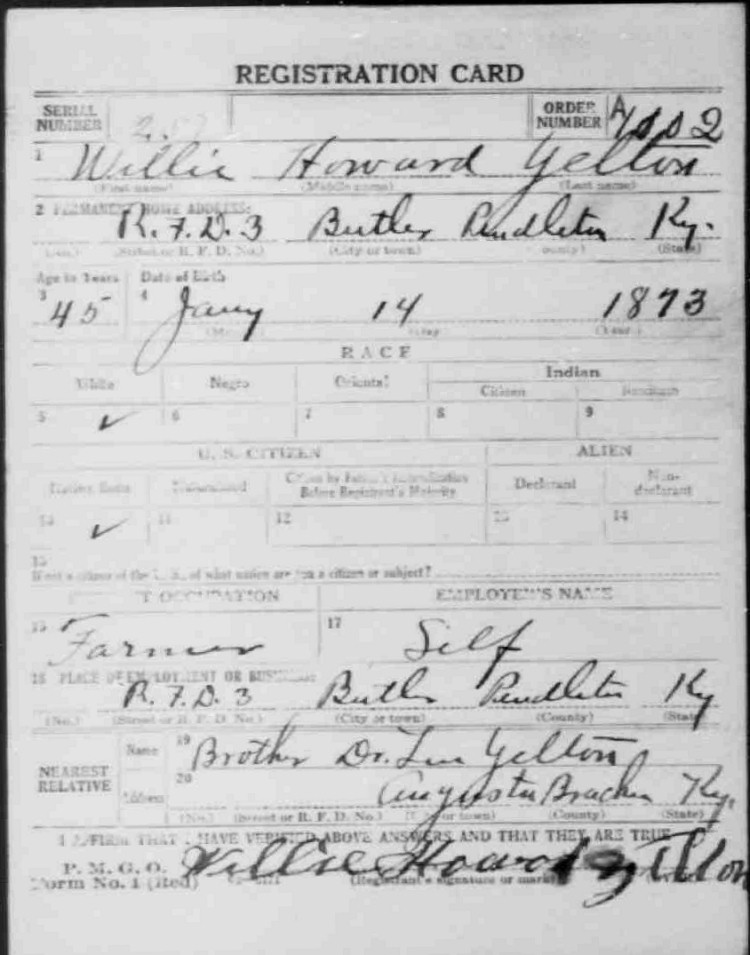 REGISTRATION CARD
SERIAL NUMBER ORDER NUMBER A
1 Willie Howard Yelton
(First name) (Middle name) (Last name)
2 PERMANENT HOME ADDRESS:
R.F.D. 3 Butler Pendleton Ky.
(No.) (Street or R. F. D. No.) (City or town) (County) (State)
Age in Years Date of Birth
3 45 4 Jany 14 1873
(Day) (Year)
RACE
White Negro Oriental Indian
Citizen
5 ✓ 6 7 8 9
U. S. CITIZEN ALIEN
Native Born Naturalized Citizen by Father's Naturalization Before Registrant's Majority Declarant Non-declarant
10 ✓ 11 12 13 14
15
If not a citizen of the U. S., of what nation are you a citizen or subject?
T OCCUPATION EMPLOYER'S NAME
16 Farmer 17 Self
18 PLACE OF EMPLOYMENT OR BUSINESS:
R.F.D. 3 Butler Pendleton Ky
(No.) (Street or R. F. D. No.) (City or town) (County) (State)
NEAREST RELATIVE
Name 19 Brother Dr. Yelton
Address 20 Augusta Bracken Ky.
(No.) (Street or R. F. D. No.) (City or town) (County) (State)
I AFFIRM THAT I HAVE VERIFIED ABOVE ANSWERS AND THAT THEY ARE TRUE
P. M. G. O.
Form No. 1 (Red) Willie Howard Yelton
(Registrant's signature or mark)